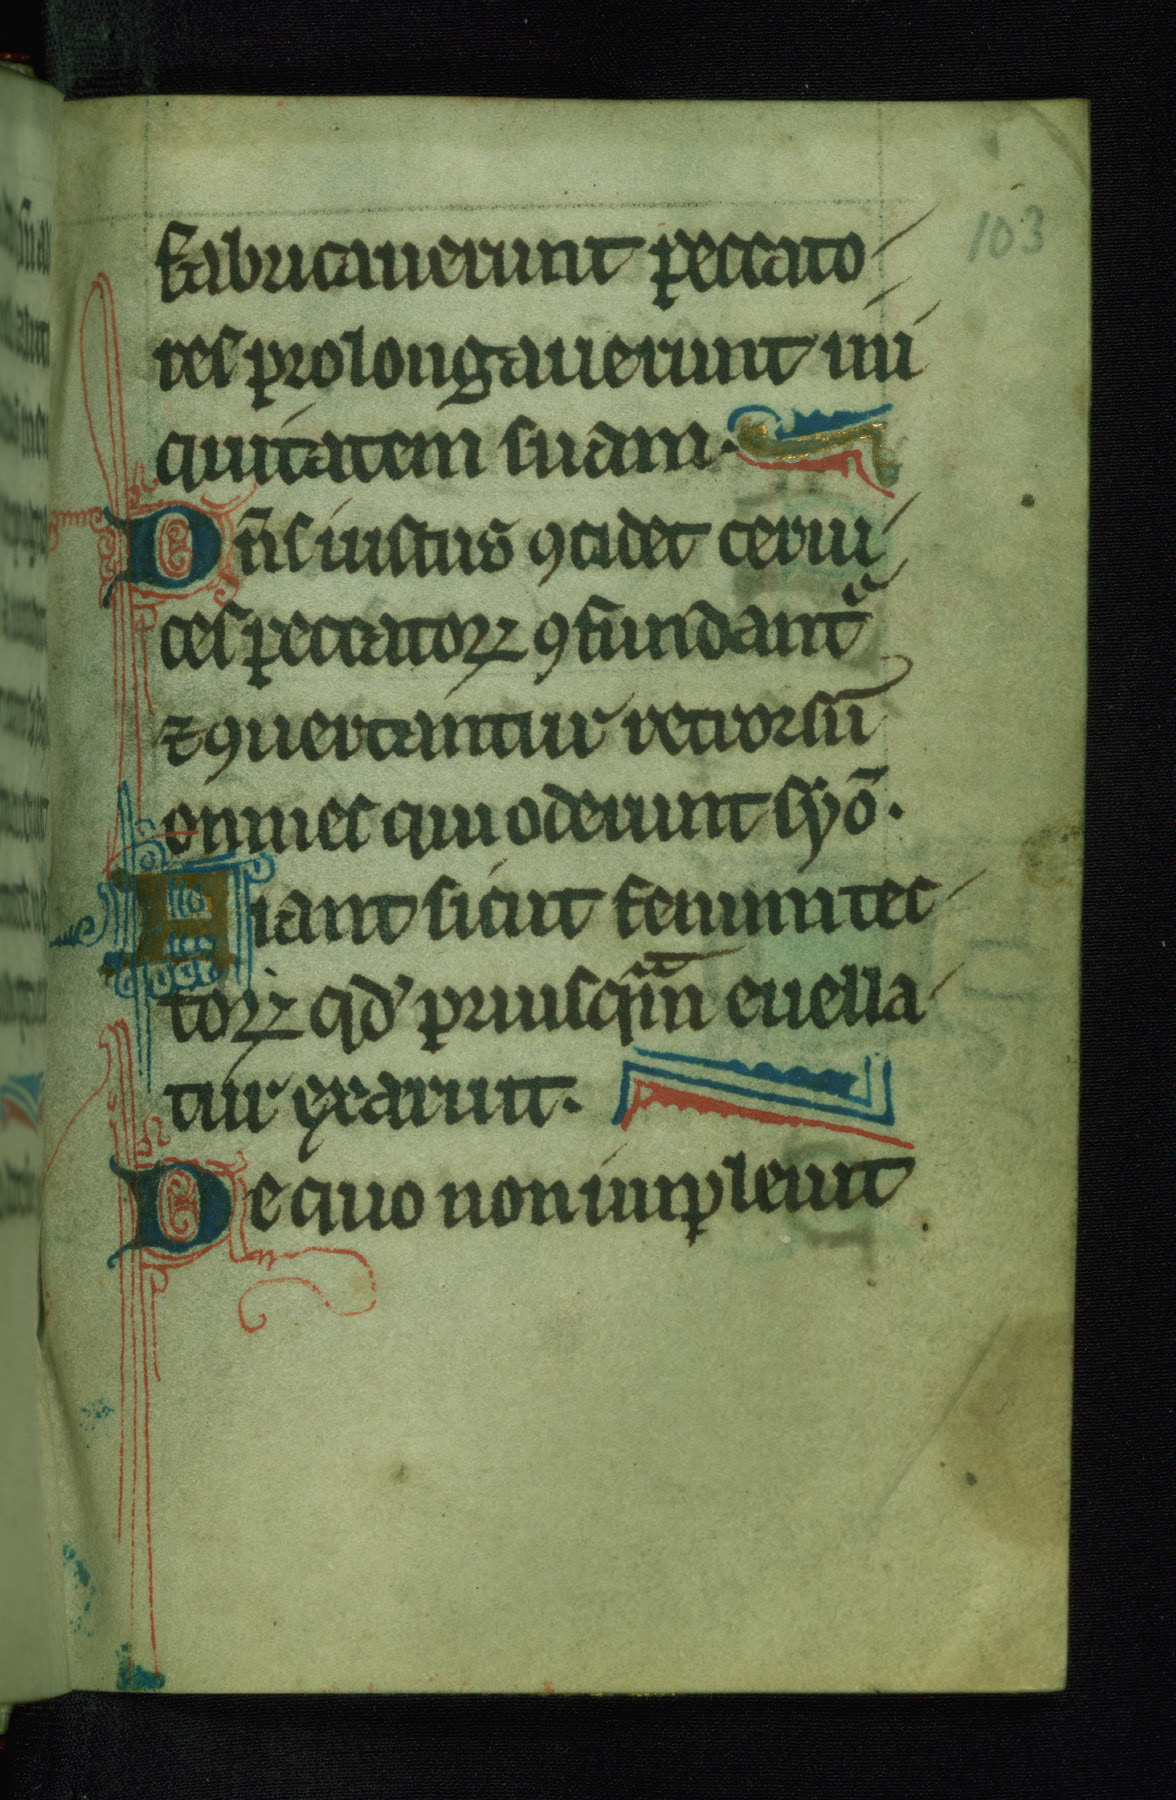 103
fabricauerunt peccato
res prolongauerunt ini
quitatem suam.
Dn̄s iustus ꝯcidet ceruı
ces peccatoꝝ ꝯfundant᷑
⁊ ꝯuertantur retrorsū
omnes qui oderunt syō.
Fiant sicut fenum tec
toꝝ qd' priusqͣm euella
tur exaruit.
De quo non impleuit